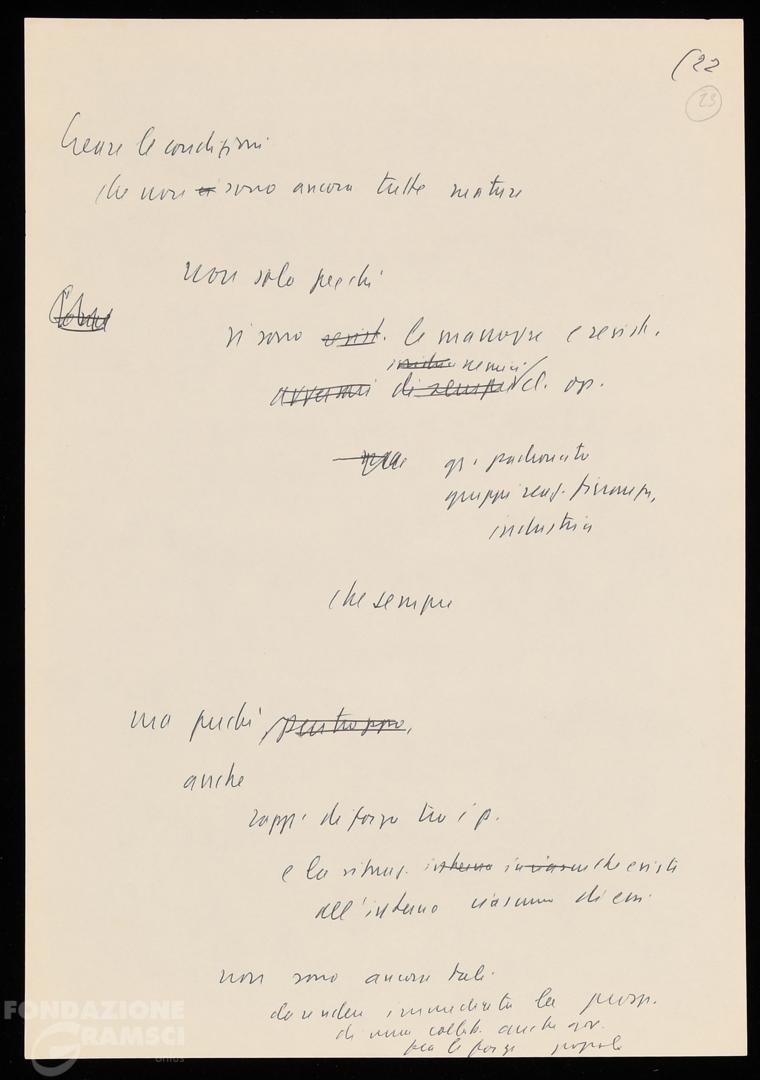 (22
23
Creare le condizioni
che non ci sono ancora tutte mature
non solo perché
vi sono resist. le manovre e resist.
nemici
avversari di sempre cl. op.
gr. padronato
gruppi reaz. finanza,
industria
che sempre
ma perché purtroppo,
anche
rapp. di forza tra i p.
e la situaz. interna in ciascun che esiste
all'interno ciascuno di essi
non sono ancora tali
da rendere immediata la prosp.
di una collab. anche gov.
tra le forze popol
FONDAZIONE
GRAMSCI
onlus